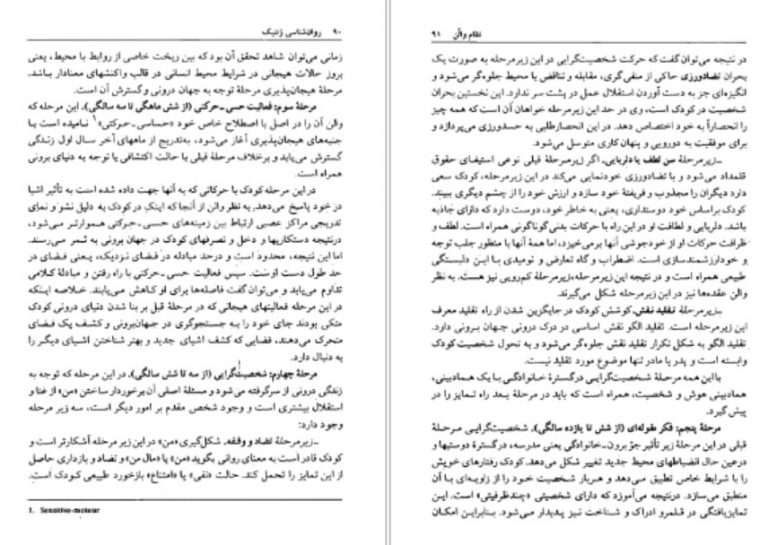 ۹۰ روان‌شناسی ژنتیک
زمانی می‌توان شاهد تحقق آن بود که بین ریخت خاصی از روابط با محیط، یعنی
بروز حالات هیجانی در شرایط محیط انسانی در قالب واکنشهای معنادار باشد.
مرحلهٔ هیجان‌پذیری مرحلهٔ توجه به جهان درونی وگسترش آن است.
مرحلهٔ سوم: فعالیت حسی ـ حرکتی (از شش ماهگی تا سه سالگی). این مرحله که
والن آن را در اصل با اصطلاح خاص خود «حساسی ـ حرکتی»۱ نامیده است با
جنبه‌های هیجان‌پذیری آغاز می‌شود، به‌تدریج از ماههای آخر سال اول زندگی
گسترش می‌یابد و برخلاف مرحلهٔ قبلی با حالت اکتشافی یا توجه به دنیای برونی
همراه است.
در این مرحله کودک با حرکاتی که به آنها جهت داده شده است به تأثیر اشیا
در خود پاسخ می‌دهد. به نظر والن از آنجا که اینک در کودک به دلیل نشو و نمای
تدریجی مراکز عصبی ارتباط بین زمینه‌های حسی ـ حرکتی هموارتر می‌شود،
درنتیجه دستکاریها و دخل و تصرفهای کودک در جهان برونی به ثمر می‌رسند.
اما این نتیجه، محدود است و درحد مبادله در فضای نزدیک، یعنی فضای در
حد طول دست اوست. سپس فعالیت حسی ـ حرکتی با راه رفتن و مبادلهٔ کلامی
تداوم می‌یابد و می‌توان گفت فاصله‌ها برای او کاهش می‌یابند. خلاصه اینکه
در این مرحله فعالیتهای هیجانی که در مرحلهٔ قبل بر بنا شدن دنیای درونی کودک
متکی بودند جای خود را به جستجوگری در جهان‌برونی و کشف یک فضای
متحرک می‌دهند، فضایی که کشف اشیای جدید و بهتر شناختن اشیای دیگر را
به دنبال دارد.
مرحلهٔ چهارم: شخصیت‌گرایی (از سه تا شش سالگی). در این مرحله که توجه به
زندگی درونی از سرگرفته می‌شود و مسئلهٔ اصلی آن برخوردار ساختن «من» از غنا و
استقلال بیشتری است و وجود شخص مقدم بر امور دیگر است، سه زیر مرحله
وجود دارد:
ـ زیرمرحلهٔ تضاد و وقفه. شکل‌گیری «من» در این زیر مرحله آشکارتر است و
کودک قادر است به معنای روانی بگوید «من» یا «مال من» و تضاد و بازداری حاصل
از این تمایز را تحمل کند. حالت «نفی» یا «امتناع» بازخورد طبیعی کودک است.
1. Sensitivo-moteur
نظام والن ۹۱
در نتیجه می‌توان گفت که حرکت شخصیت‌گرایی در این زیرمرحله به صورت یک
بحران تضادورزی حاکی از منفی‌گری، مقابله و تناقض با محیط جلوه‌گر می‌شود و
انگیزه‌ای جز به دست آوردن استقلال عمل در پشت سر ندارد. این نخستین بحران
شخصیت در کودک است، وی در حد این زیرمرحله خواهان آن است که همه چیز
را انحصاراً به خود اختصاص دهد. در این انحصارطلبی به حسدورزی می‌پردازد و
برای موفقیت به دورویی و پنهان کاری متوسل می‌شود.
ـ زیرمرحلهٔ من لطف یا دلربایی. اگر زیرمرحلهٔ قبلی نوعی استیفای حقوق
قلمداد می‌شود و با تضادورزی خودنمایی می‌کند در این زیرمرحله، کودک سعی
دارد دیگران را مجذوب و فریفتهٔ خود سازد و ارزش خود را از چشم دیگری ببیند.
کودک براساس خود دوستداری، یعنی به خاطر خود، دوست دارد که دارای جاذبه
باشد. دلربایی و لطافت او در این راه با حرکات بدنی گوناگونی همراه است. لطف و
ظرافت حرکات او از خودجوشی آنها برمی‌خیزد، اما همهٔ آنها با منظور جلب توجه
و خودارزشمندسازی است. اضطراب و گاه تعارض و نومیدی با این دلبستگی
طبیعی همراه است و در نتیجه این زیرمرحله، زیرمرحلهٔ کم‌رویی نیز هست. به نظر
والن عقده‌ها نیز در این زیر مرحله شکل می‌گیرند.
ـ زیرمرحلهٔ تقلید نقش. کوشش کودک در جایگزین شدن از راه تقلید معرف
این زیرمرحله است. تقلید الگو نقش اساسی در درک درونی جهان برونی دارد.
تقلید الگو به شکل تکرار تقلید نقش جلوه‌گر می‌شود و به تحول شخصیت کودک
وابسته است و پدر یا مادر تنها موضوع مورد تقلید نیست.
با این همه مرحلهٔ شخصیت‌گرایی درگسترهٔ خانوادگی با یک همادبینی،
همادبینی هوش و شخصیت، همراه است که باید در مرحلهٔ بعد راه تمایز را در
پیش گیرد.
مرحلهٔ پنجم: فکر مقوله‌ای (از شش تا یازده سالگی). شخصیت‌گرایی مرحلهٔ
قبلی در این مرحله زیر تأثیر جوّ برون ـ خانوادگی یعنی مدرسه، درگسترهٔ دوستیها و
درعین حال انضباطهای محیط جدید تغییر شکل می‌دهد. کودک رفتارهای خویش
را با شرایط خاص تطبیق می‌دهد و هربار شخصیت خود را از زاویه‌ای با آن
منطبق می‌سازد. درنتیجه می‌آموزد که دارای شخصیتی «چندظرفیتی» است. این
تمایزیافتگی در قلمرو ادراک و شناخت نیز پدیدار می‌شود. بنابراین امکان